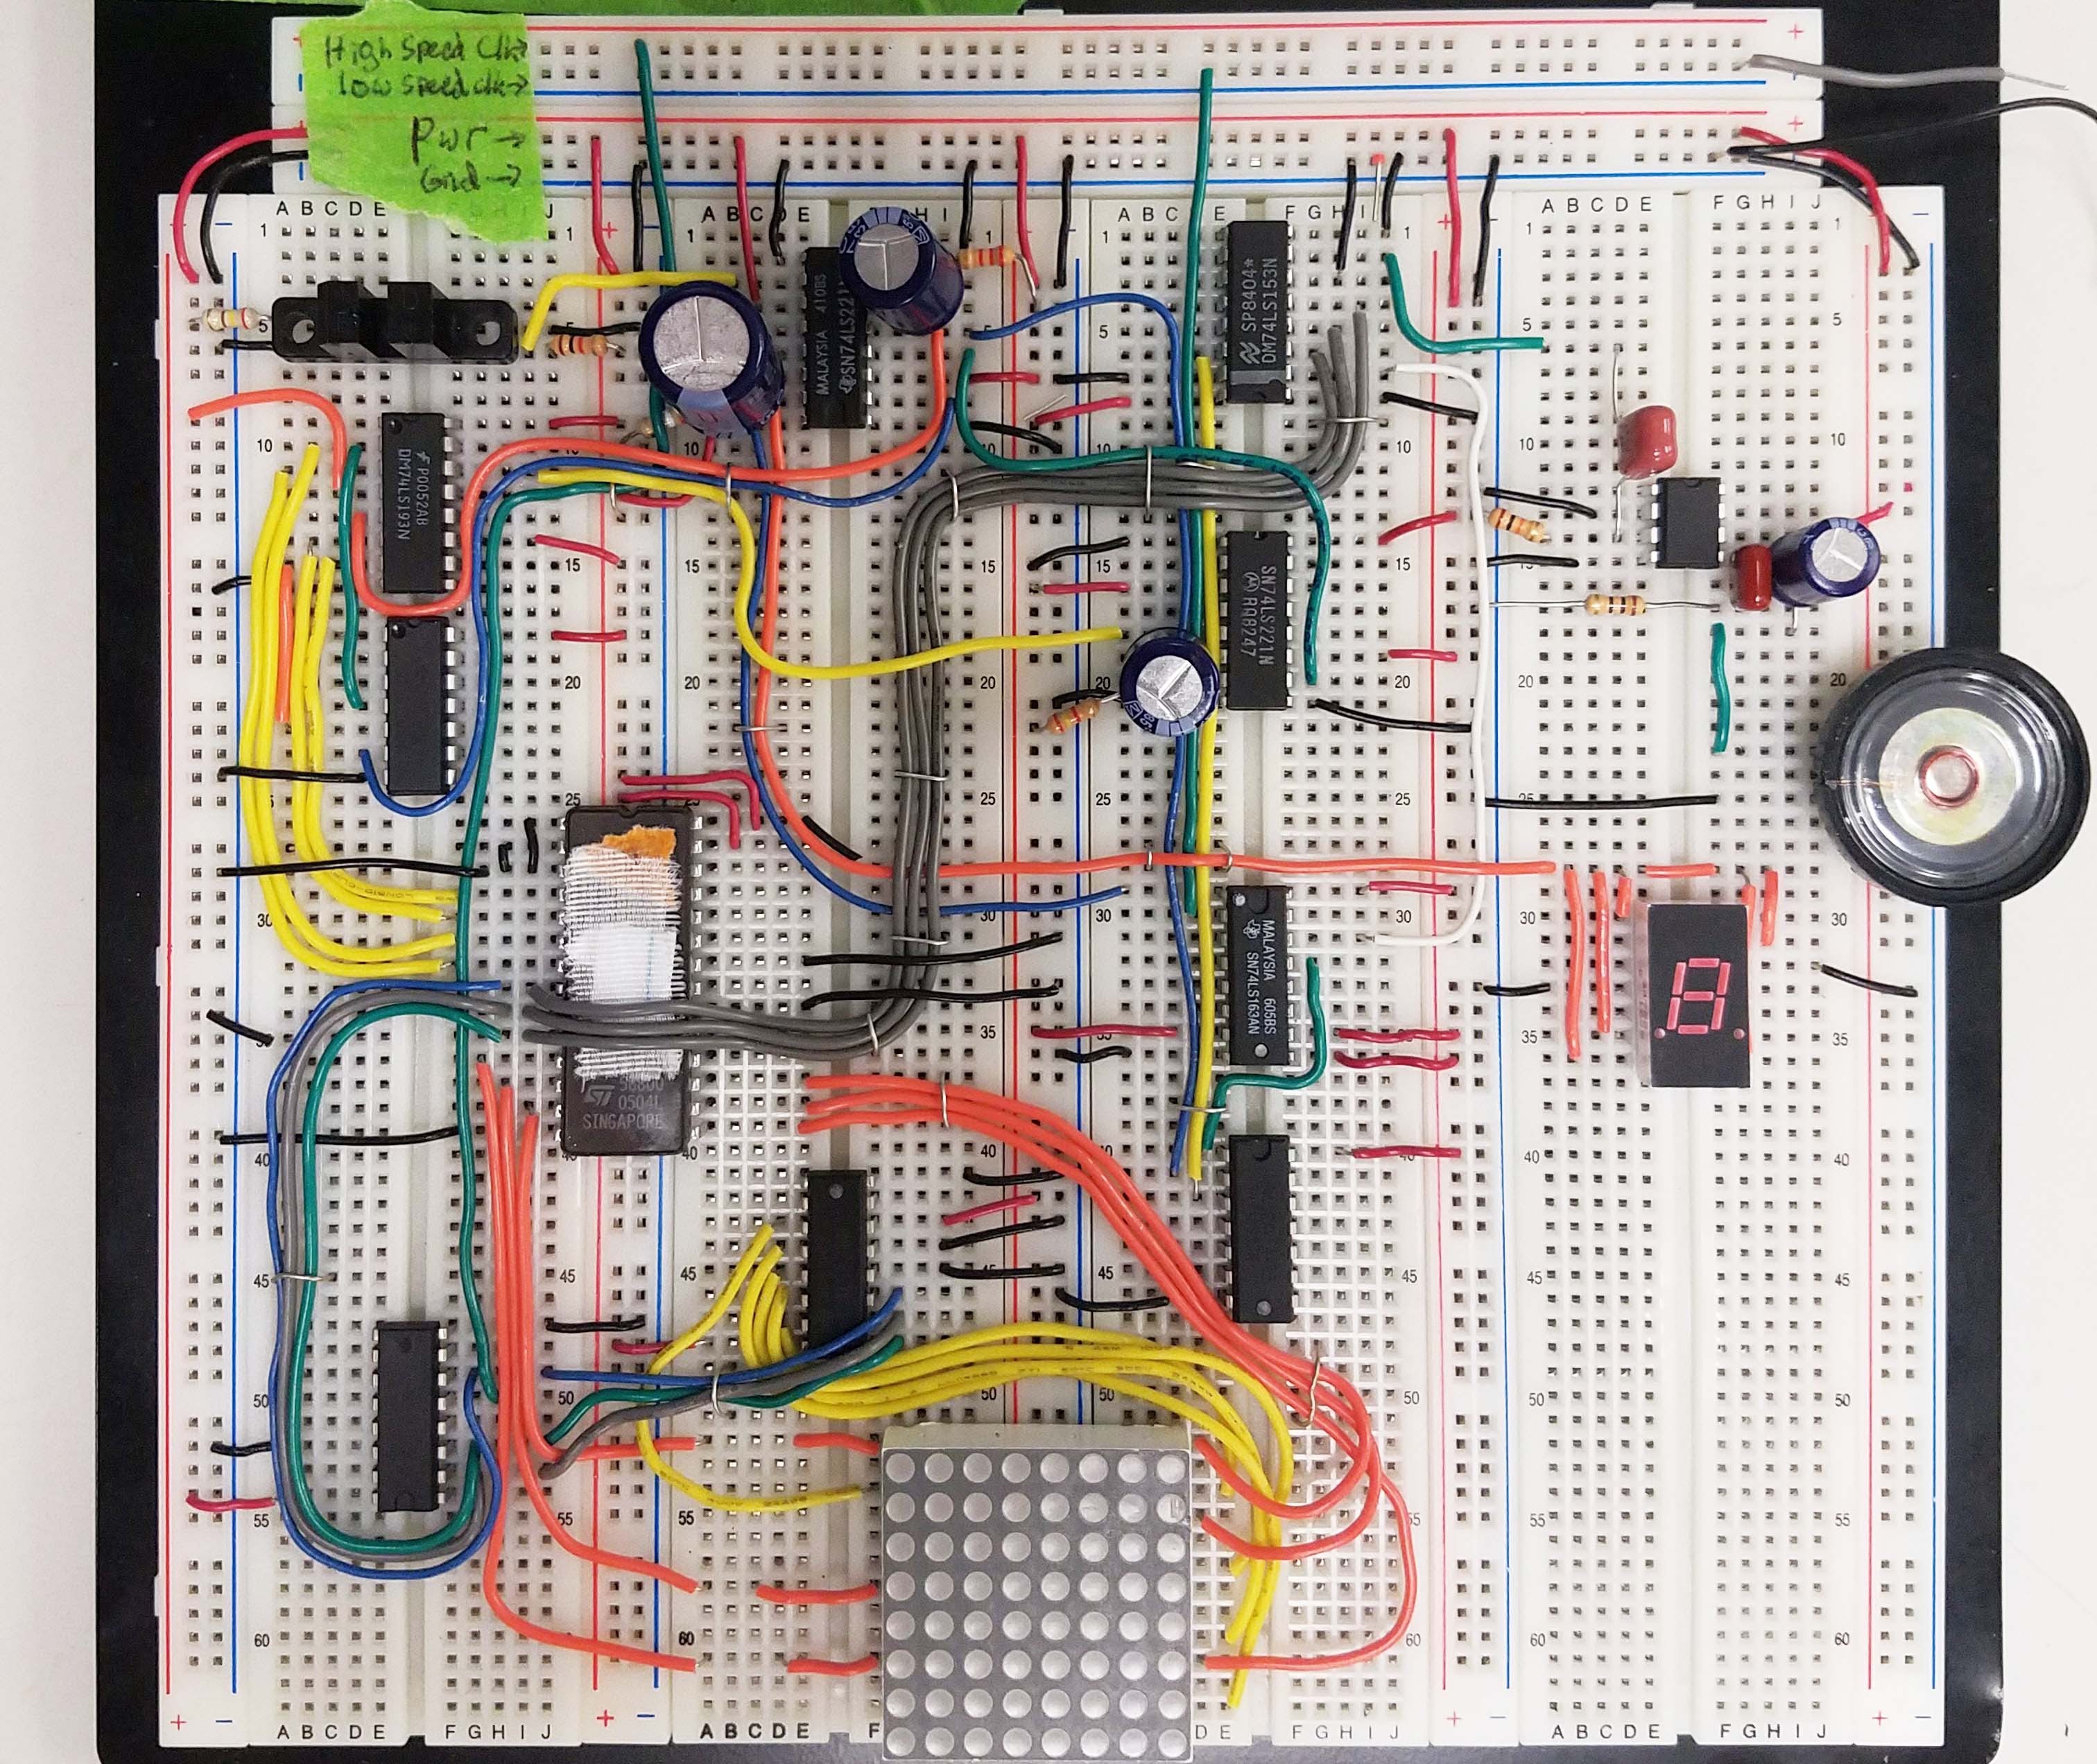 High Speed Clk→
low speed clk→
Pwr →
Gnd →
A B C D E
J
A B C D E
H I
A B C E
F G H I
A B C D E
F G H I J
MALAYSIA 410BS
SN74LS221N
SP8404*
DM74LS153N
P0052AB
DM74LS193N
SN74LS221N
RR8247
MALAYSIA 605BS
SN74LS163AN
ST
0504L
SINGAPORE
1
5
10
15
20
25
30
35
40
45
50
55
60
A B C D E
F G H I J
A B C D E
F
D E
F G H I J
A B C D E
F G H I J